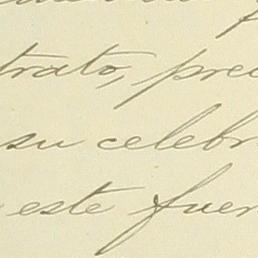 trato, prec
su celebr
este fuer